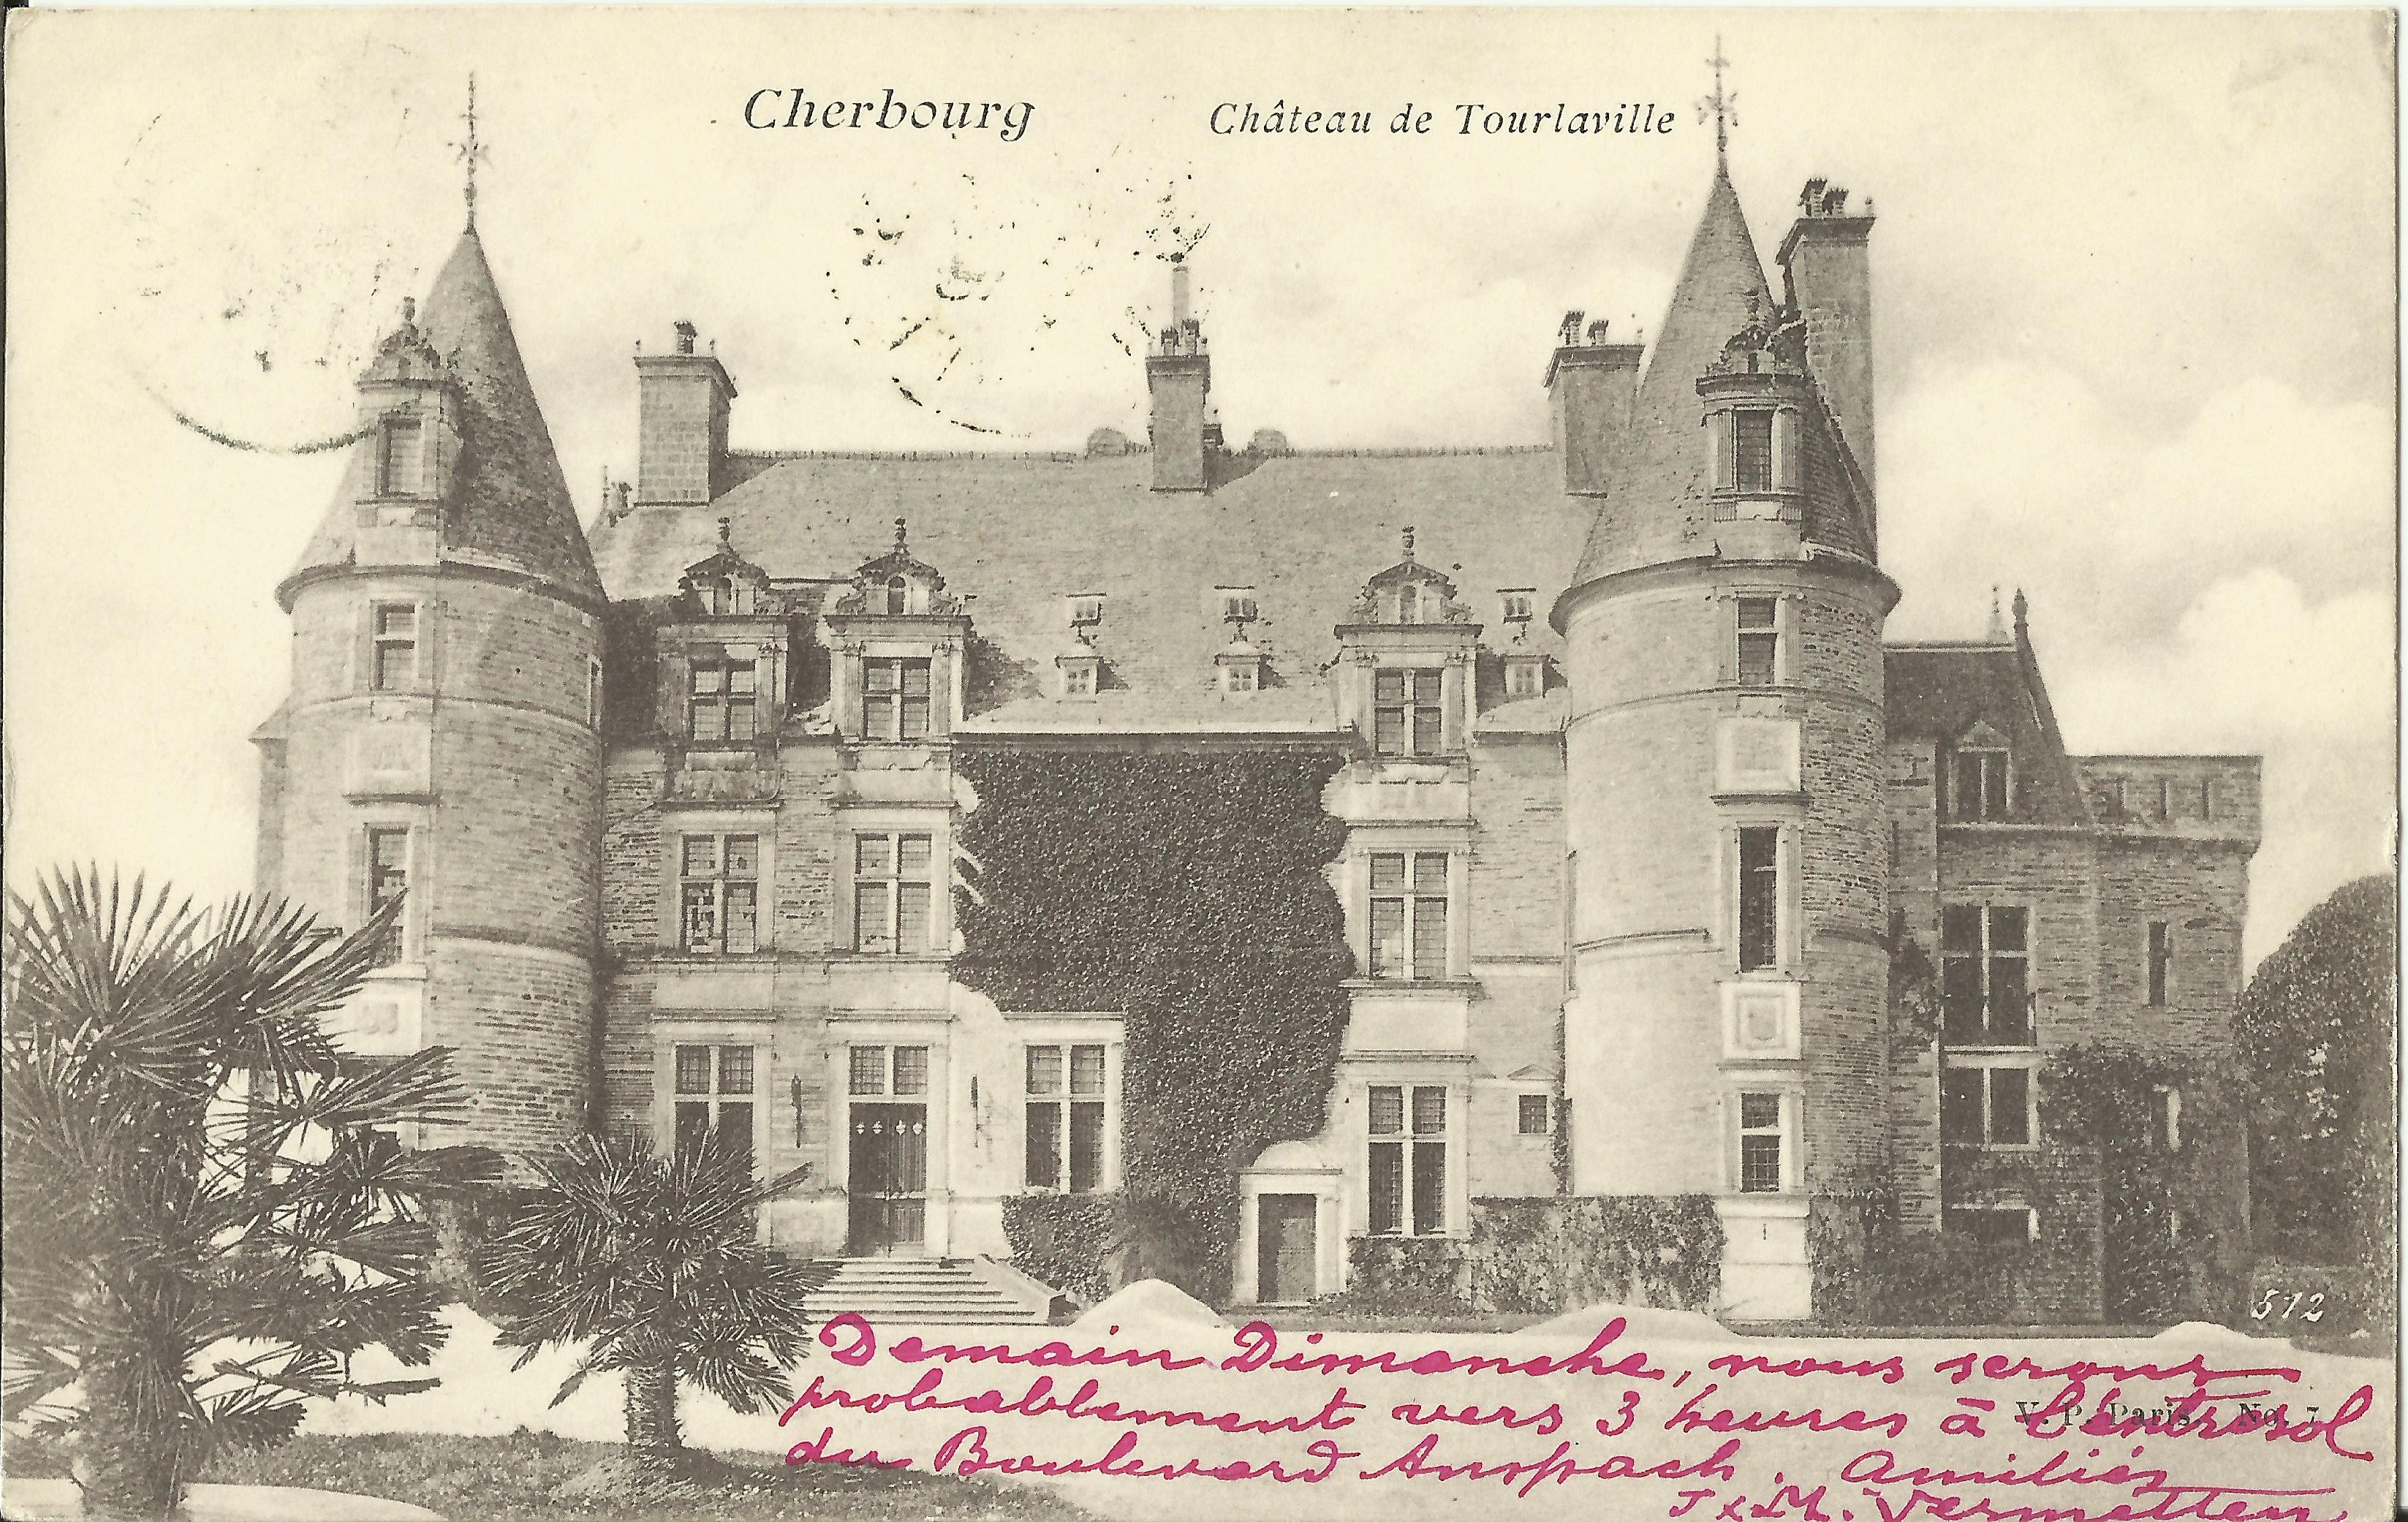 Cherbourg Château de Tourlaville
512
Demain Dimanche, nous serons
probablement vers 3 heures à l'entresol
V. P. Paris. No. 7
du Boulevard Anspach. Amitiés
Vermetten